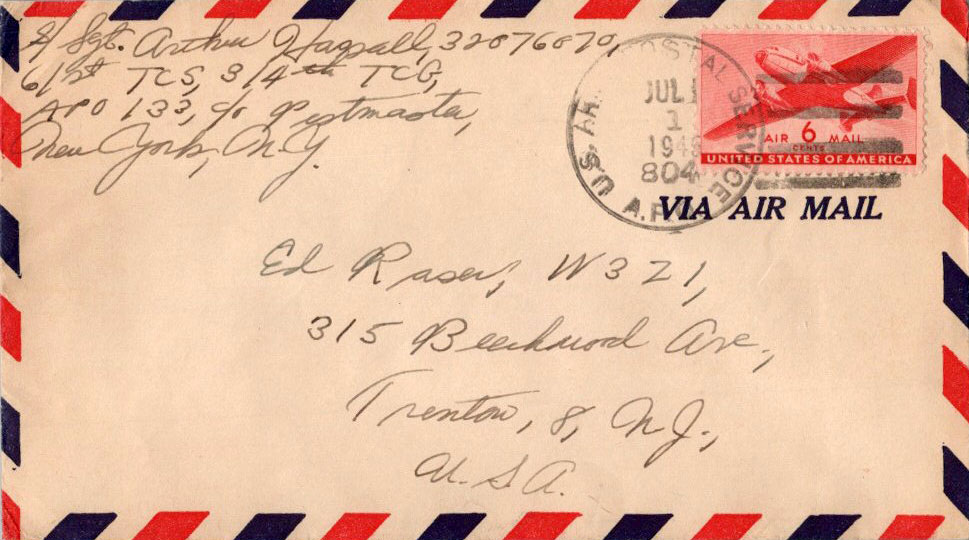 S/Sgt. Arthur Haggall, 32076070,
61st TCS, 314th TCG,
APO 133, c/o Postmaster,
New York, N.Y.
U.S. ARMY POSTAL SERVICE
JUL
1
194
804
A.P.O.
AIR 6 MAIL
CENTS
UNITED STATES OF AMERICA
VIA AIR MAIL
Ed Raser, W3ZI,
315 Beechwood Ave.,
Trenton, 8, N.J.,
U.S.A.